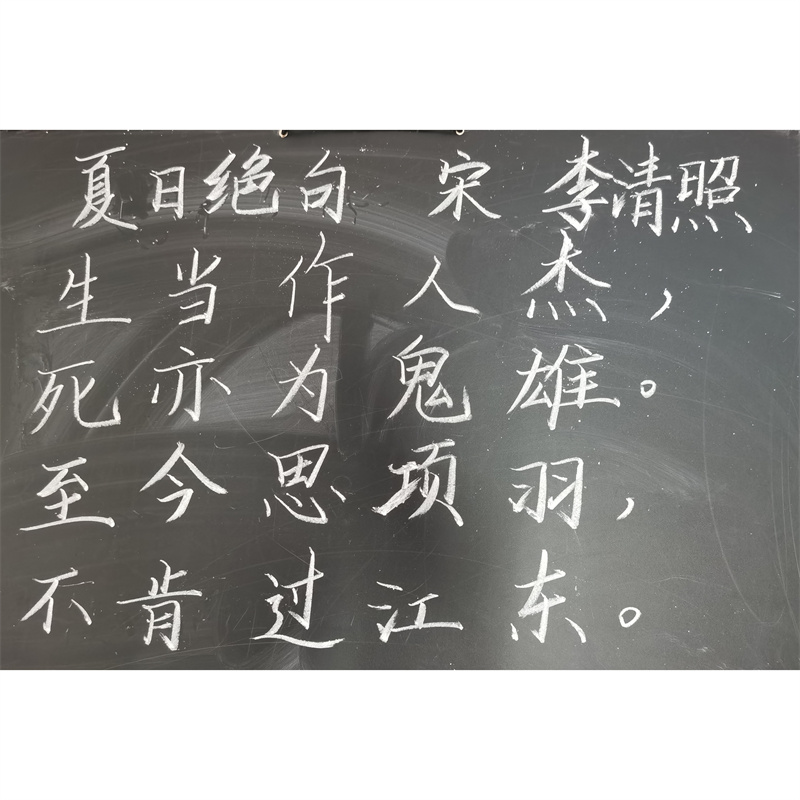 夏日绝句 宋 李清照
生当作人杰，
死亦为鬼雄。
至今思项羽，
不肯过江东。